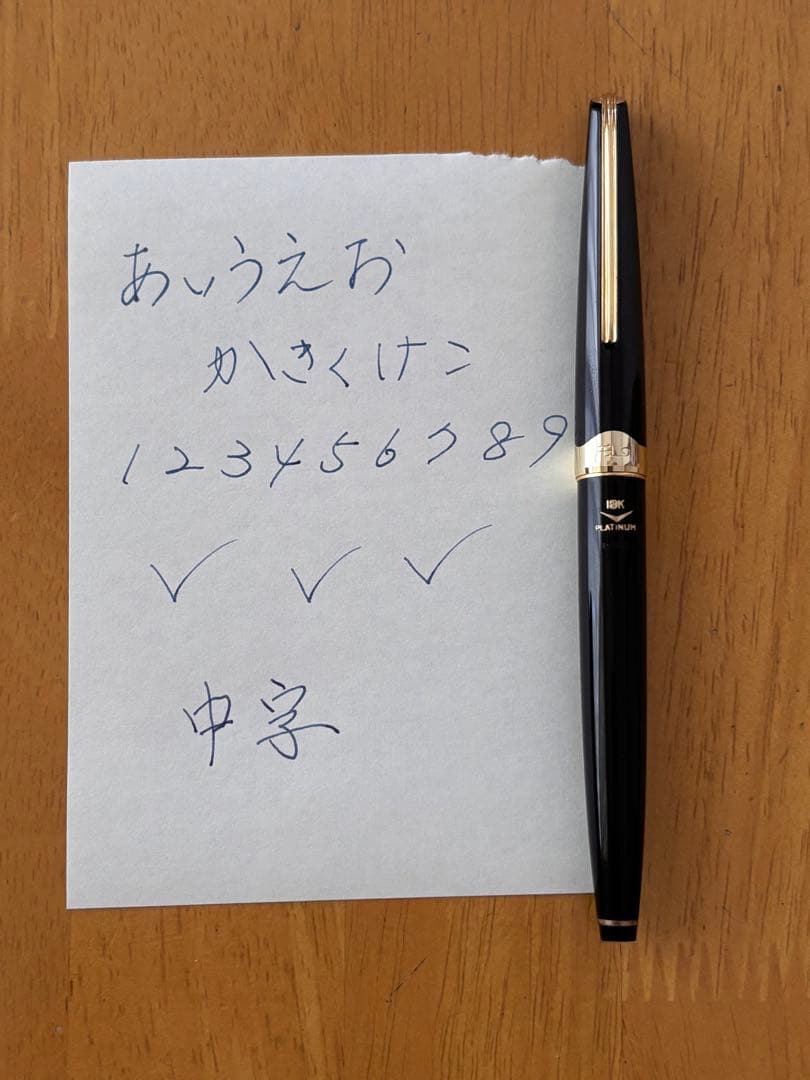 あいうえお
かきくけこ
1 2 3 4 5 6 7 8 9
✓ ✓ ✓
中字
18K
PLATINUM